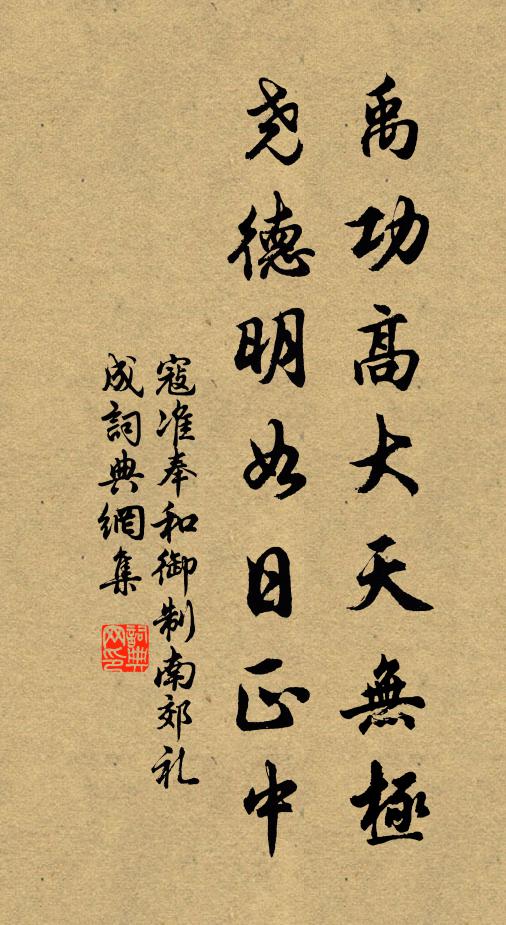 禹功高大天無極
尧德明如日正中
寇准奉和御制南郊礼
成詞典網集
詞典
网印